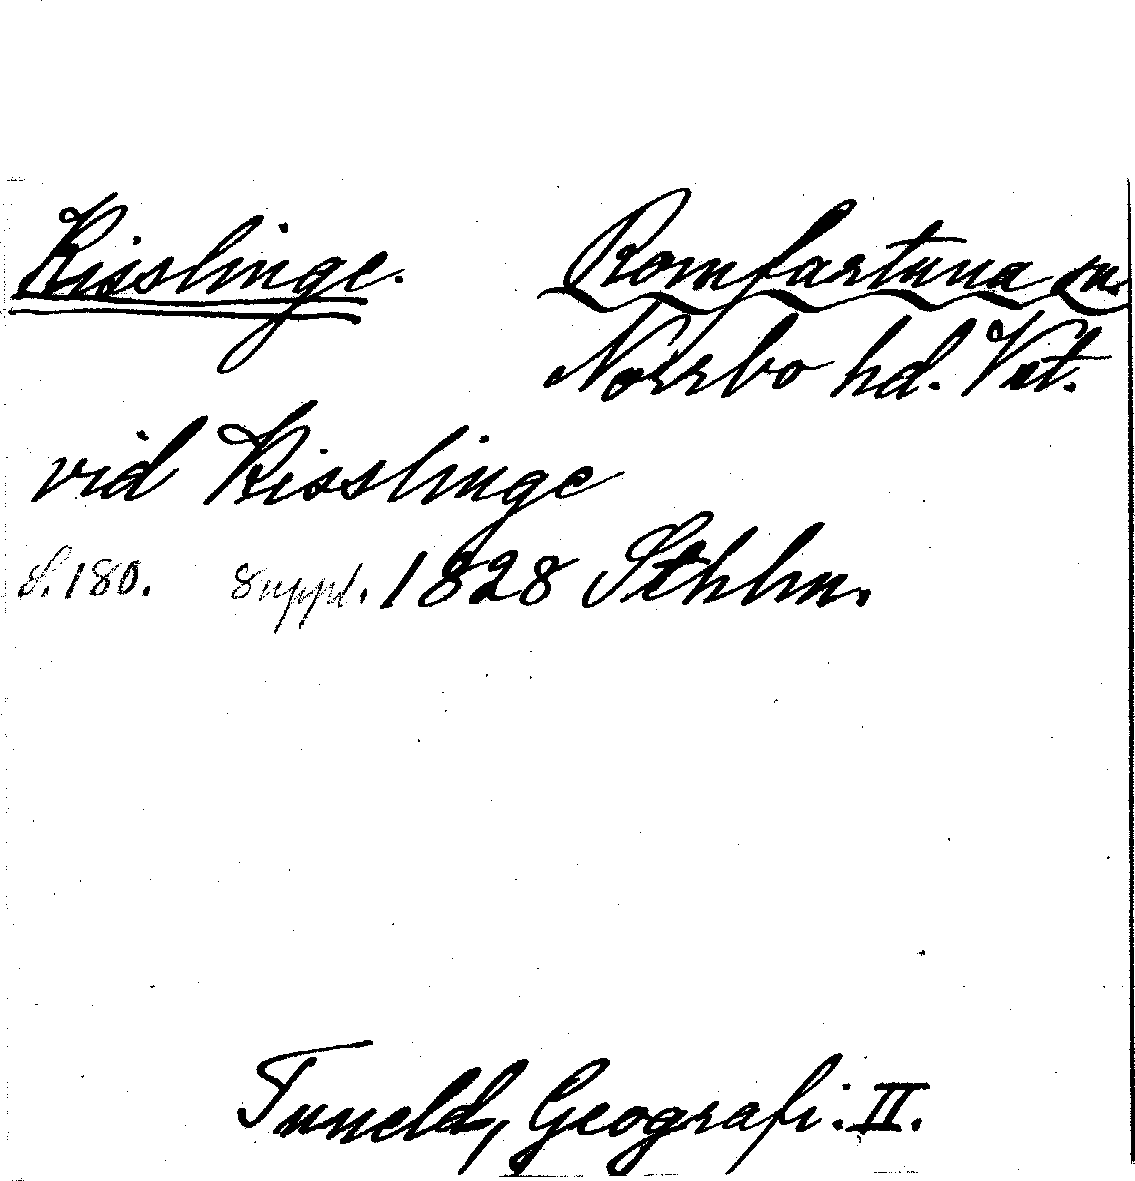 Kisslinge. Romfartuna sn.
Norrbo hd. Vst.
vid Kisslinge
S. 180. Suppl. 1828 Sthlm.
Tuneld, Geografi. II.